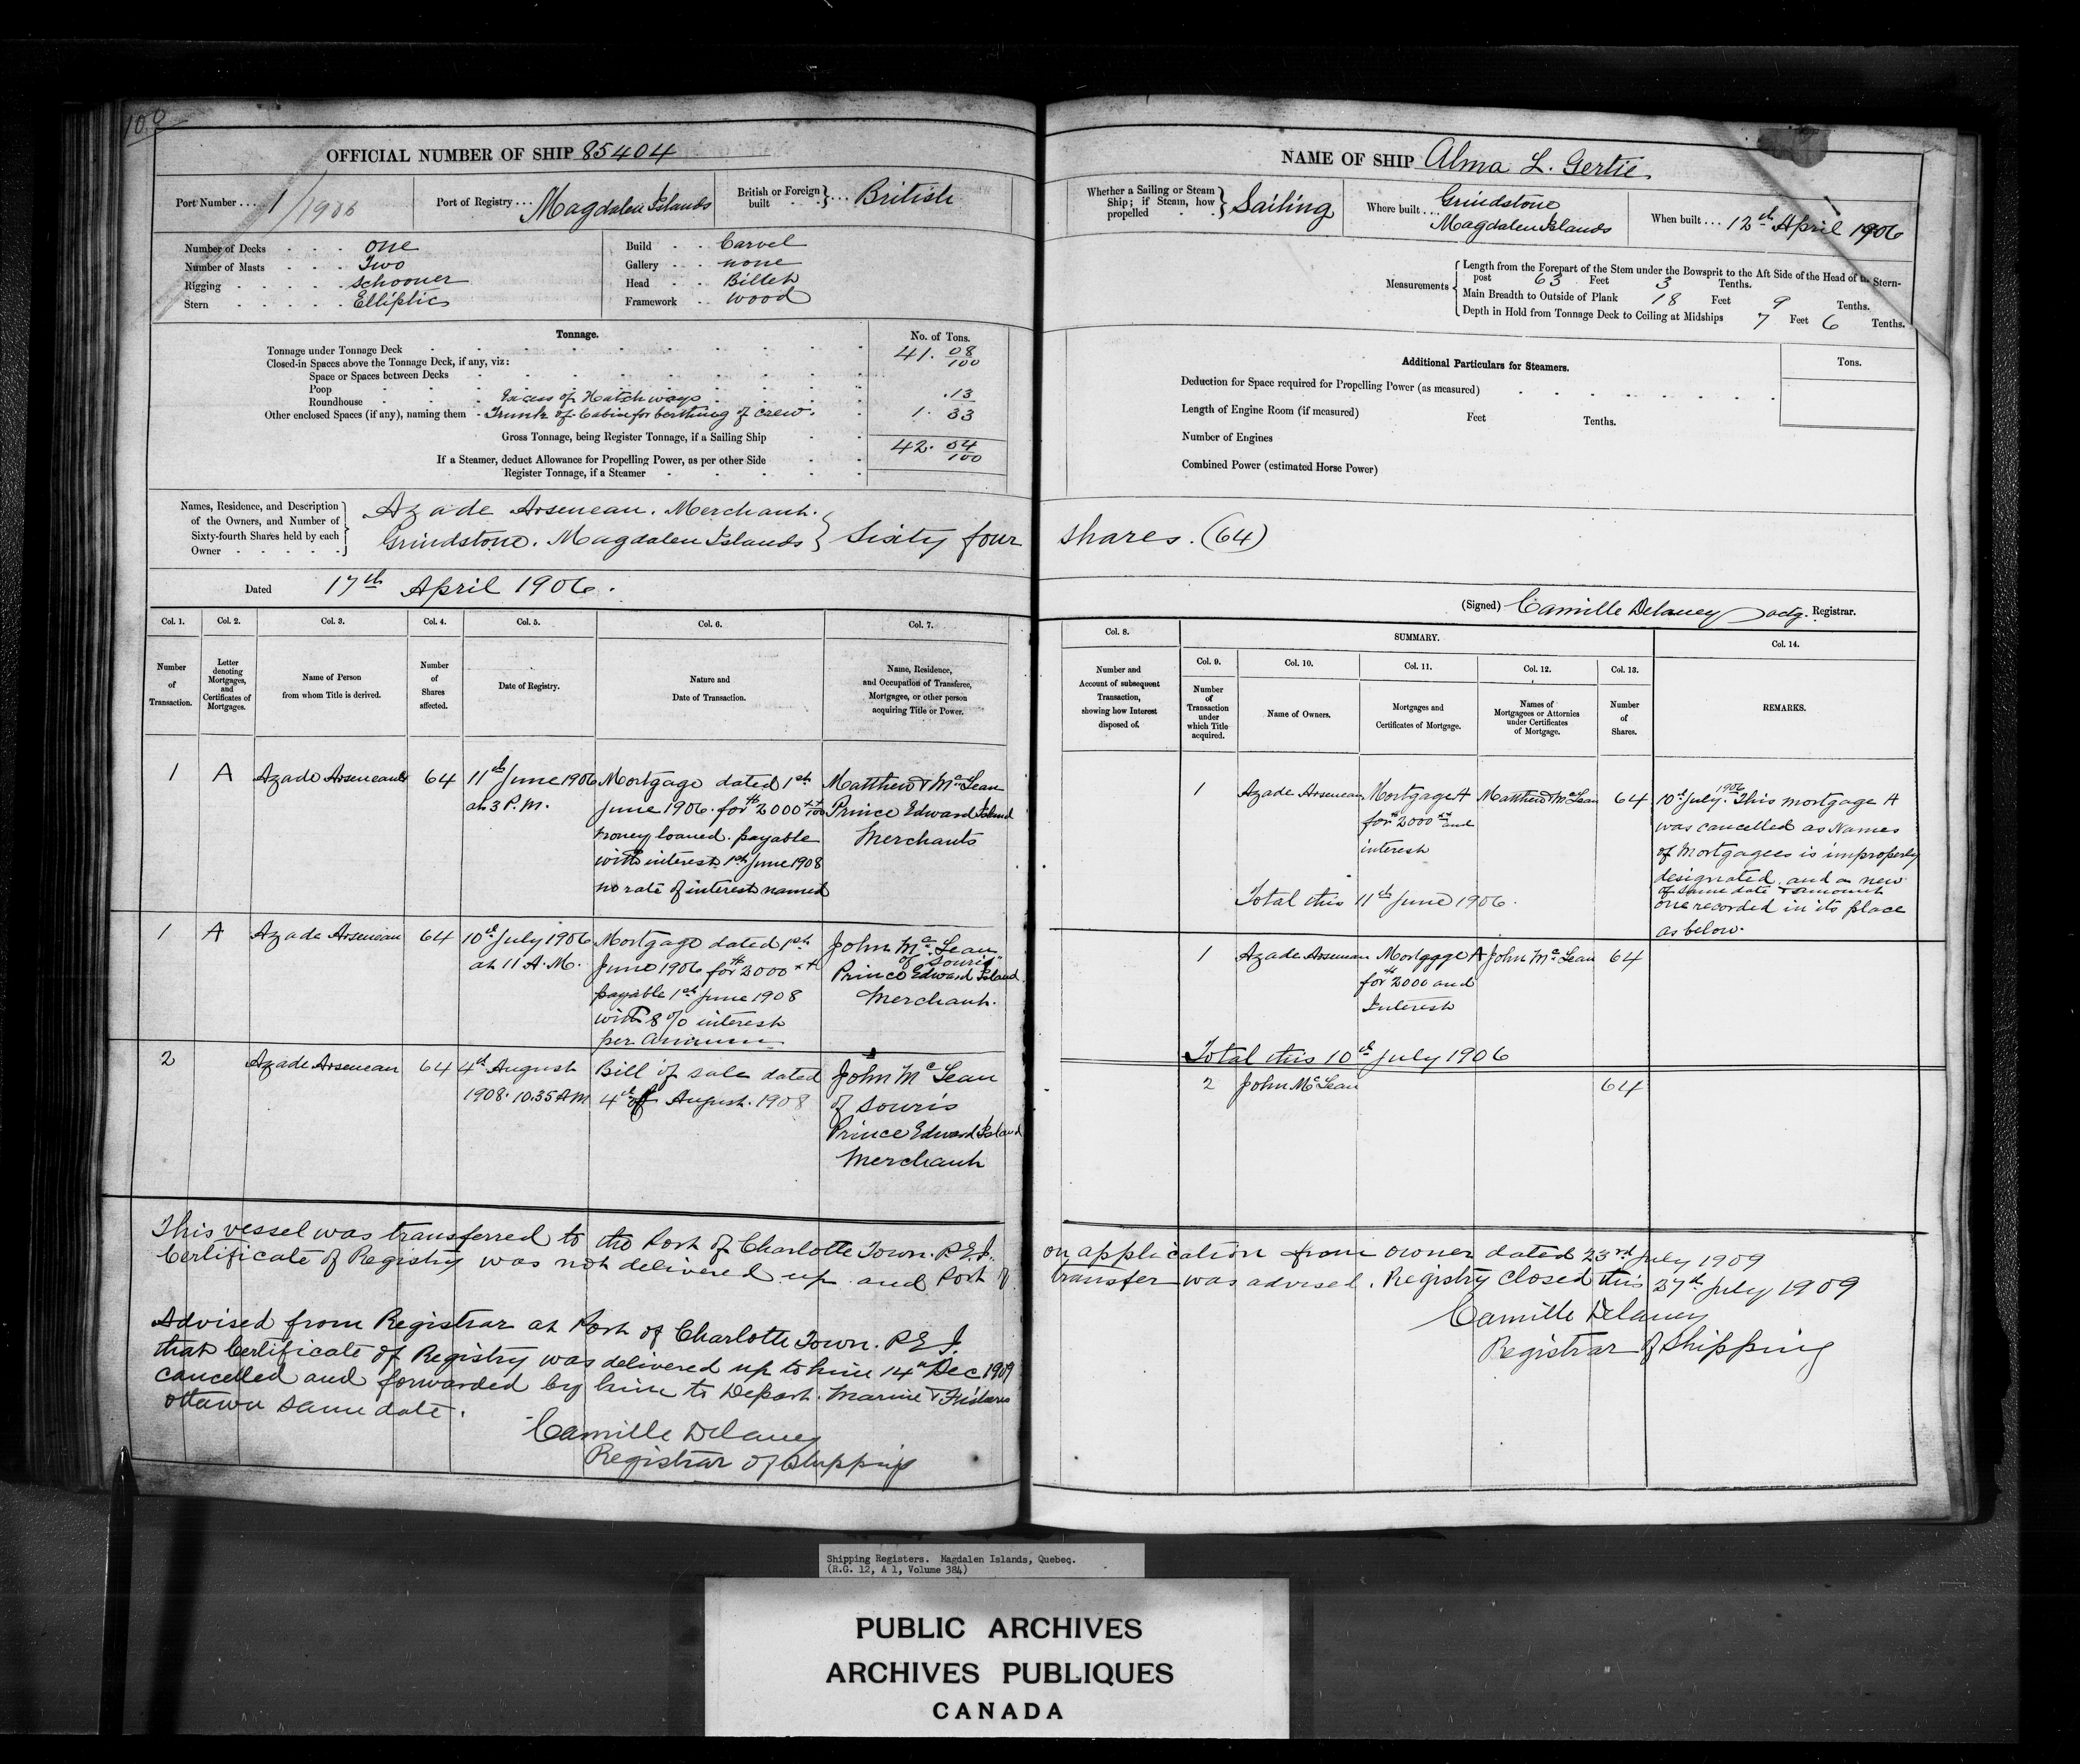 100
OFFICIAL NUMBER OF SHIP 85404
Port Number .... 1/1906
Port of Registry .... Magdalen Islands
British or Foreign built } .... British
Number of Decks . . . one
Number of Masts . . . Two
Rigging . . . . . Schooner
Stern . . . . . Elliptic
Build . . Carvel
Gallery . . none
Head . . Billet
Framework . . wood
Tonnage.
No. of Tons.
Tonnage under Tonnage Deck 41. 08/100
Closed-in Spaces above the Tonnage Deck, if any, viz:
Space or Spaces between Decks
Poop
Roundhouse Excess of Hatchways .13
Other enclosed Spaces (if any), naming them - Trunk of Cabin for berthing of crew. 1. 33
Gross Tonnage, being Register Tonnage, if a Sailing Ship 42. 04/100
If a Steamer, deduct Allowance for Propelling Power, as per other Side
Register Tonnage, if a Steamer
Names, Residence, and Description of the Owners, and Number of Sixty-fourth Shares held by each Owner
Azade Arseneau. Merchant.
Grindstone. Magdalen Islands } Sixty four
Dated 17th April 1906.
Col. 1. Col. 2. Col. 3. Col. 4. Col. 5. Col. 6. Col. 7.
Number of Transaction.
Letter denoting Mortgages, and Certificates of Mortgages.
Name of Person from whom Title is derived.
Number of Shares affected.
Date of Registry.
Nature and Date of Transaction.
Name, Residence, and Occupation of Transferee, Mortgagee, or other person acquiring Title or Power.
1 A Azade Arseneau 64 11th June 1906 Mortgage dated 1st Matthew & McLean
at 3 P.M. June 1906. for $2000 xx/100 Prince Edward Island
money loaned. payable Merchants
with interest 1st June 1908
no rate of interest named
1 A Azade Arseneau 64 10th July 1906 Mortgage dated 1st John McLean
at 11 A.M. June 1906 for $2000 xx of Souris
payable 1st June 1908 Prince Edward Island
with 8% interest Merchant.
per annum
2 Azade Arseneau 64 4th August Bill of sale dated John McLean
1908. 10.35 AM 4th of August. 1908 of Souris
Prince Edward Island
Merchant
This vessel was transferred to the Port of Charlotte Town. P.E.I.
Certificate of Registry was not delivered up and Port of
Advised from Registrar at Port of Charlotte Town. P E I.
that Certificate of Registry was delivered up to him 14th Dec 1909
cancelled and forwarded by him to Depart. Marine & Fisheries
Ottawa same date.
Camille Delaney
Registrar of Shipping
NAME OF SHIP Alma L. Gertie.
Whether a Sailing or Steam Ship; if Steam, how propelled } Sailing
Where built .... Grindstone
Magdalen Islands
When built .... 12th April 1906
Measurements
Length from the Forepart of the Stem under the Bowsprit to the Aft Side of the Head of the Stern-
post 63 Feet 3 Tenths.
Main Breadth to Outside of Plank 18 Feet 9 Tenths.
Depth in Hold from Tonnage Deck to Ceiling at Midships 7 Feet 6 Tenths.
Additional Particulars for Steamers.
Tons.
Deduction for Space required for Propelling Power (as measured)
Length of Engine Room (if measured) Feet Tenths.
Number of Engines
Combined Power (estimated Horse Power)
shares. (64)
(Signed) Camille Delaney actg. Registrar.
Col. 8. SUMMARY. Col. 14.
Col. 9. Col. 10. Col. 11. Col. 12. Col. 13.
Number and Account of subsequent Transaction, showing how Interest disposed of.
Number of Transaction under which Title acquired.
Name of Owners.
Mortgages and Certificates of Mortgage.
Names of Mortgagees or Attornies under Certificates of Mortgage.
Number of Shares.
REMARKS.
1 Azade Arseneau Mortgage A Matthew & McLean 64
for $2000 xx and
interest
Total this 11th June 1906.
10th July 1906. This mortgage A
was cancelled as Names
of Mortgagees is improperly
designated. and a new
of same date & amount
one recorded in its place
as below.
1 Azade Arseneau Mortgage A John McLean 64
for $2000 and
Interest
Total this 10th July 1906
2 John McLean 64
on application from owner dated 23rd July 1909
transfer was advised. Registry closed this 27th July 1909
Camille Delaney
Registrar of Shipping
Shipping Registers. Magdalen Islands, Quebec.
(R.G. 12, A 1, Volume 384)
PUBLIC ARCHIVES
ARCHIVES PUBLIQUES
CANADA